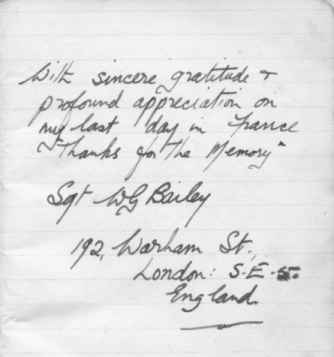 With sincere gratitude +
profound appreciation on
my last day in France
"Thanks for the Memory"
Sgt WG Bailey
192, Warham St.,
London: S.E.5.
England